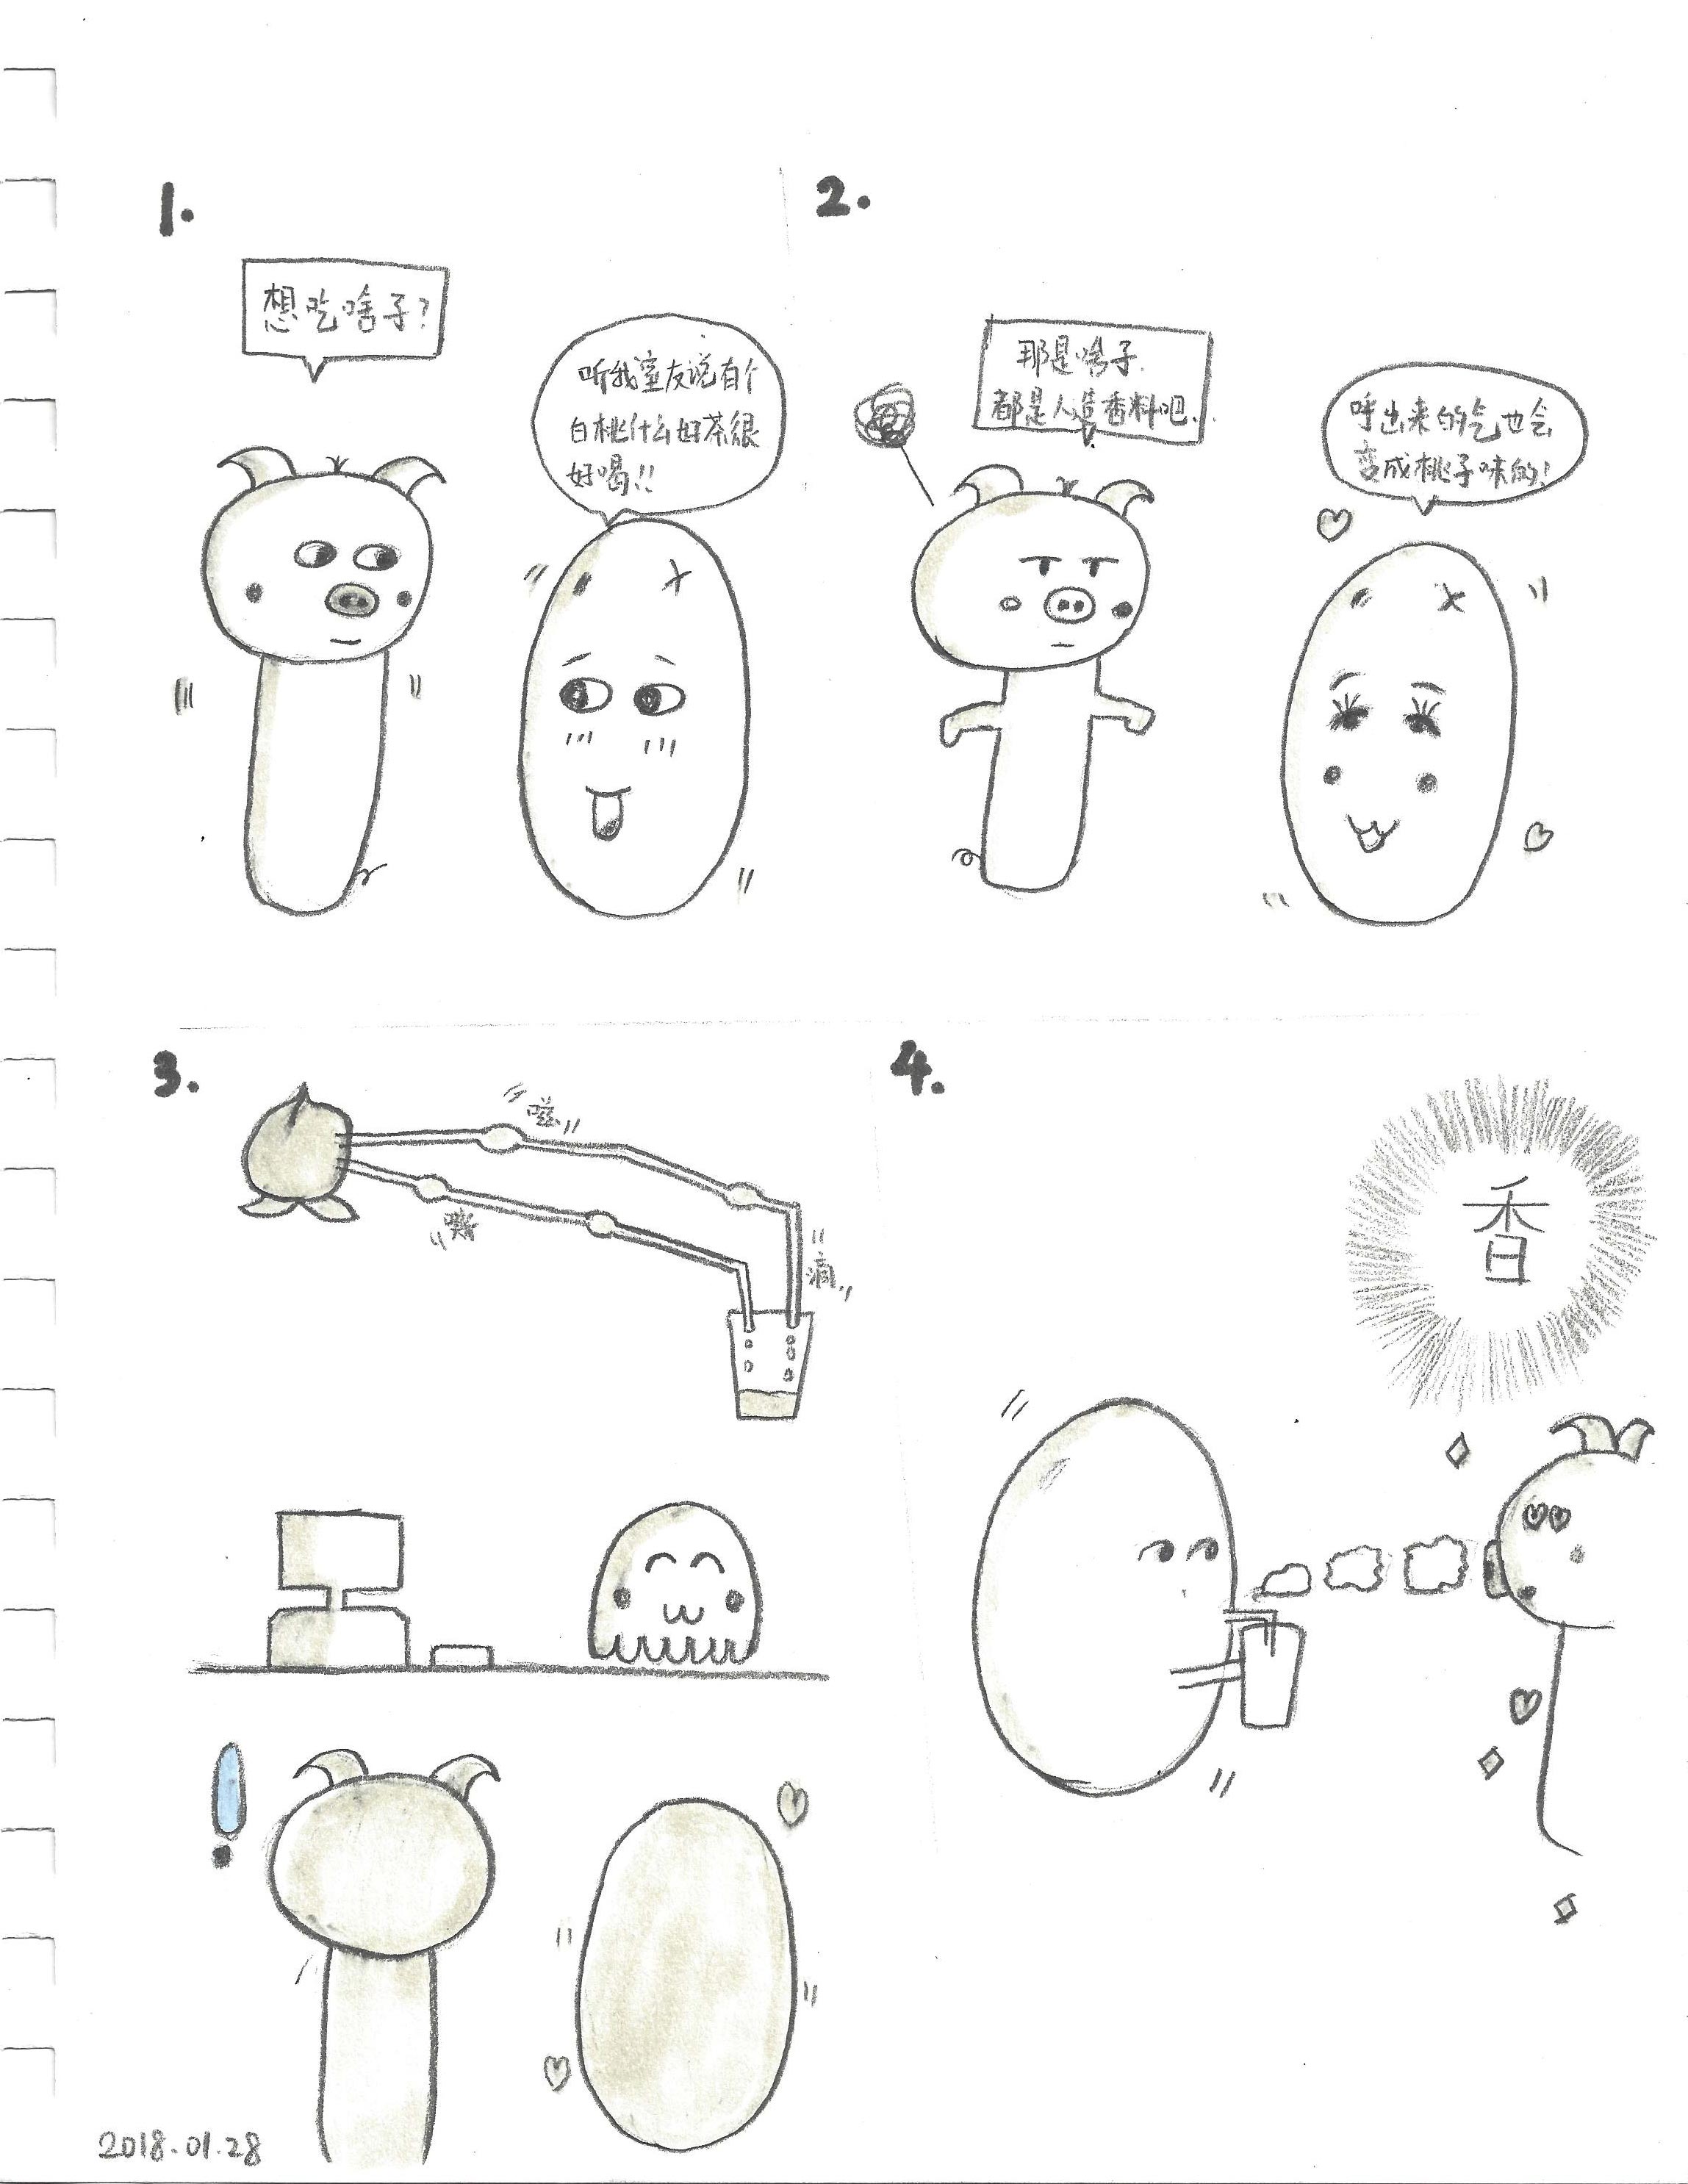 1.
想吃啥子?
听我室友说有个
白桃什么好茶很
好喝!!
2.
那是啥子.
都是人造香料吧..
呼出来的气也会
变成桃子味的!
3.
"滋"
"滴"
4.
香
2018.01.28